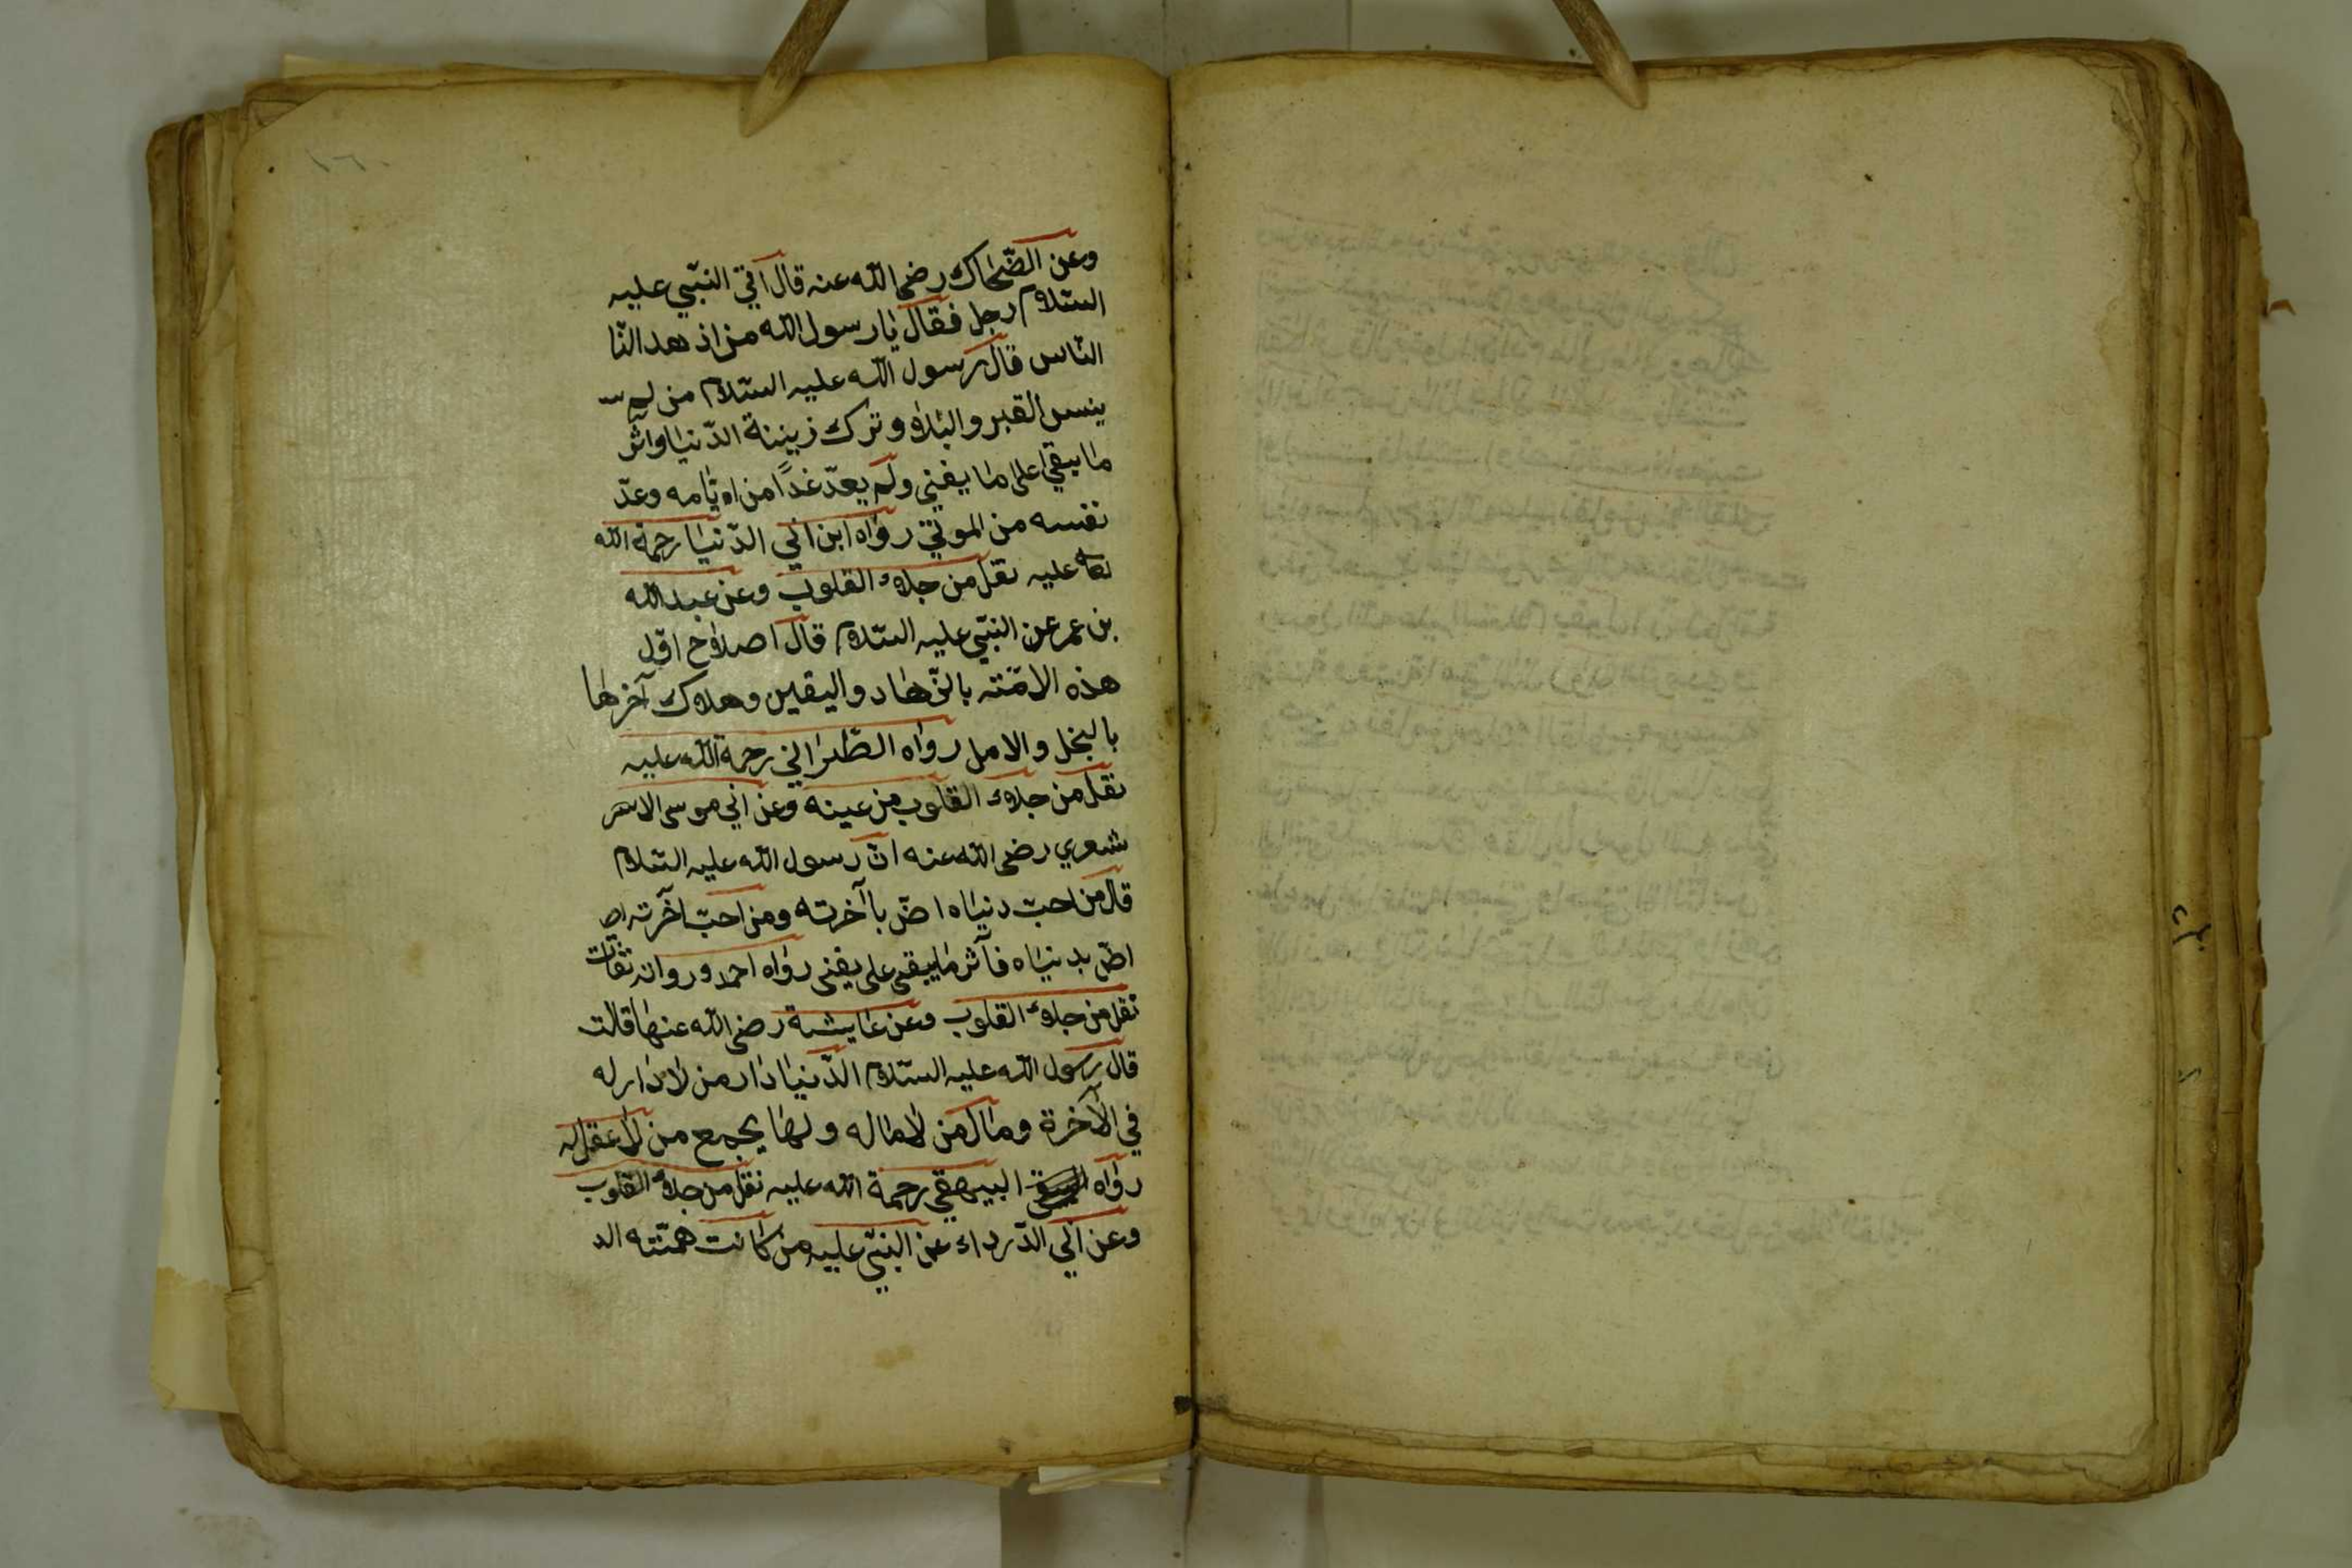 وعن الضّحاك رضى الله عنه قال اتي النبّي عليه
السّلام رجل فقال يا رسول الله من ازهد النّا
النّاس قال رسول الله عليه السّلام من لم
ينس القبر والبلاء وترك زينة الدّنيا وآثر
ما يبقي على ما يفني ولم يعدّ غدًا من ايّامه وعدّ
نفسه من الموتي رواه ابن ابي الدّنيا رحمة الله
عليه نقل من جلاء القلوب وعن عبد الله
بن عمر عن النبّي عليه السّلام قال اصلاح اوّل
هذه الامّته بالزّهاد واليقين وهلاك آخرها
بالبخل والامل رواه الطّبراني رحمة الله عليه
نقل من جلاء القلوب من عينه وعن ابي موسى الا
شعري رضى الله عنه انّ رسول الله عليه السّلام
قال من احبّ دنياه اضّ باآخرته ومن احبّ آخرته اض
اضّ بدنياه فآثر ما يبقى على يفنى رواه احمد ورواته ثقات
نقل من جلاء القلوب وعن عايشة رضى الله عنها قالت
قال رسول الله عليه السّلام الدّنيا دار من لا دار له
في الآخرة ومال من لا مال له ولها يجمع من لا عقل له
رواه البيهقي رحمة الله عليه نقل من جلاء القلوب
وعن ابي الدّرداء عن النبيّ عليه من كانت همّته الد